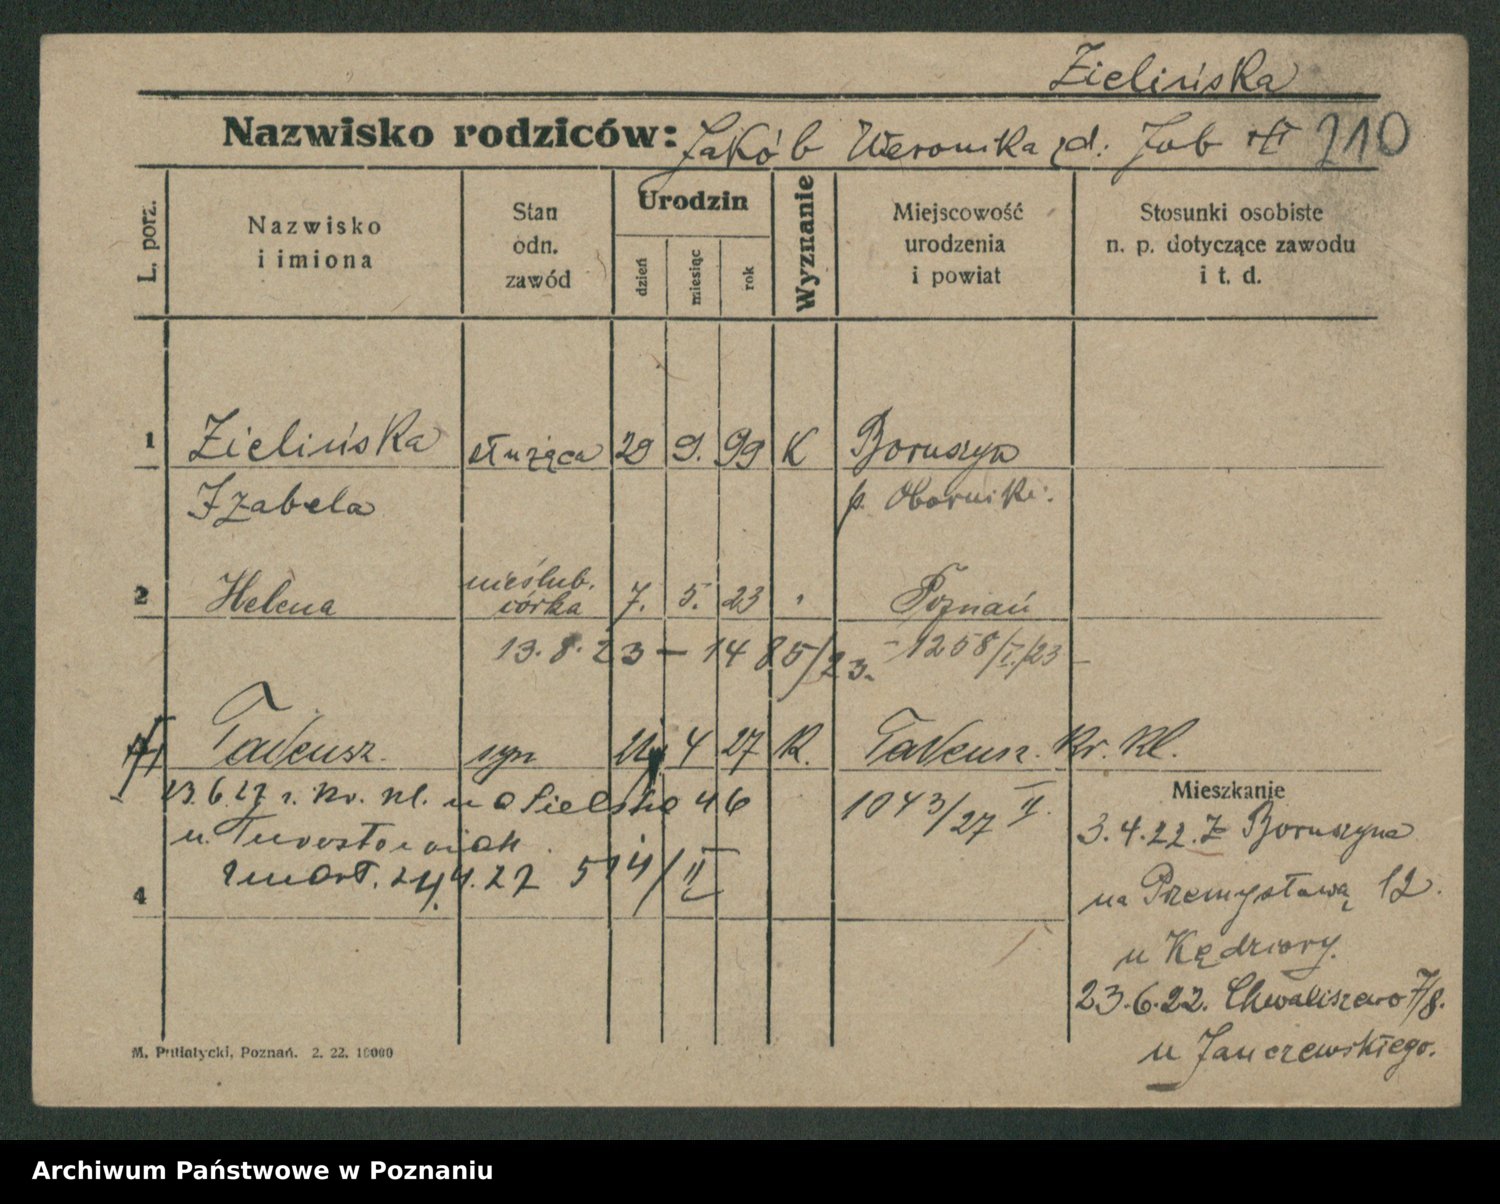 Zielińska
Nazwisko rodziców: Jakób Weronika zd: Job 210
L. porz.
Nazwisko
i imiona
Stan
odn.
zawód
Urodzin
dzień
miesiąc
rok
Wyznanie
Miejscowość
urodzenia
i powiat
Stosunki osobiste
n. p. dotyczące zawodu
i t. d.
1 Zielińska służąca 29 9. 99 K Boruszyn
Izabela p. Oborniki.
2 Helena nieślub. córka 7. 5. 23 " Poznań
13.8.23 – 1485/23. – 1258/I./23 –
Tadeusz. syn 4 27 K. Tadeusz. Kr. Kl.
23.6.27 z. Kr. Kl. na Sielska 46 1043/27 II.
u.
zmarł. 24.4.27 514/II
4
Mieszkanie
3.4.22. Z Boruszyna
na Przemysłową 12.
u Kędziory.
23.6.22. Chwaliszewo 7/8.
u Janczewskiego.
M. Putiatycki, Poznań. 2. 22. 10000
Archiwum Państwowe w Poznaniu